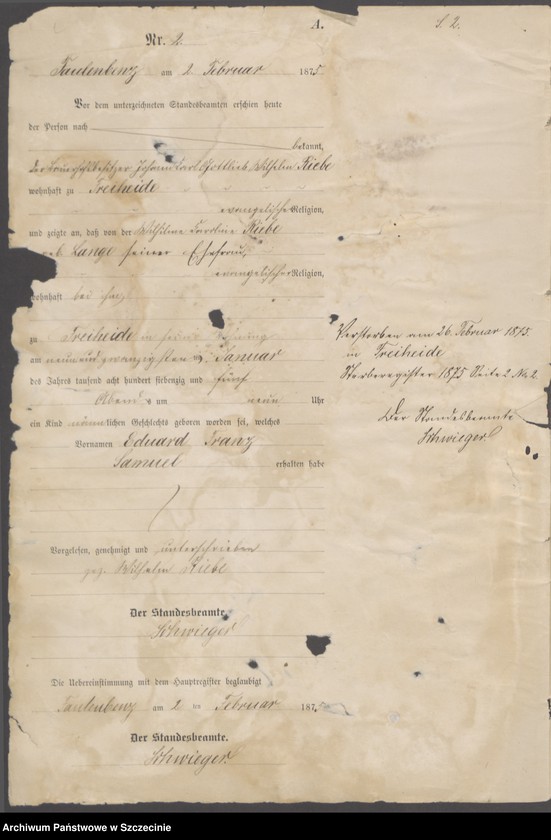 A.
S. 2.
Nr. 2.
Faulenbenz am 2 Februar 1875.
Vor dem unterzeichneten Standesbeamten erschien heute
der Person nach
bekannt,
der Bauerhofbesitzer Johann Carl Gottlieb Wilhelm Riebe
wohnhaft zu Freiheide
evangelischer Religion,
und zeigte an, daß von der Wilhelmine Caroline Riebe
geb. Lange seiner Ehefrau,
evangelischer Religion,
wohnhaft bei ihm,
zu Freiheide in seiner Wohnung
am neunundzwanzigsten Januar
des Jahres tausend acht hundert siebenzig und fünf
Abends um neun Uhr
ein Kind männlichen Geschlechts geboren worden sei, welches
Vornamen Eduard Franz
Samuel erhalten habe
Vorgelesen, genehmigt und unterschrieben
gez. Wilhelm Riebe
Der Standesbeamte.
Schwieger
Die Uebereinstimmung mit dem Hauptregister beglaubigt
Faulenbenz am 2 ten Februar 1875
Der Standesbeamte.
Schwieger.
Verstorben am 26. Februar 1875
in Freiheide
Sterberegister 1875 Seite 2 No. 2.
Der Standesbeamte
Schwieger
Archiwum Państwowe w Szczecinie